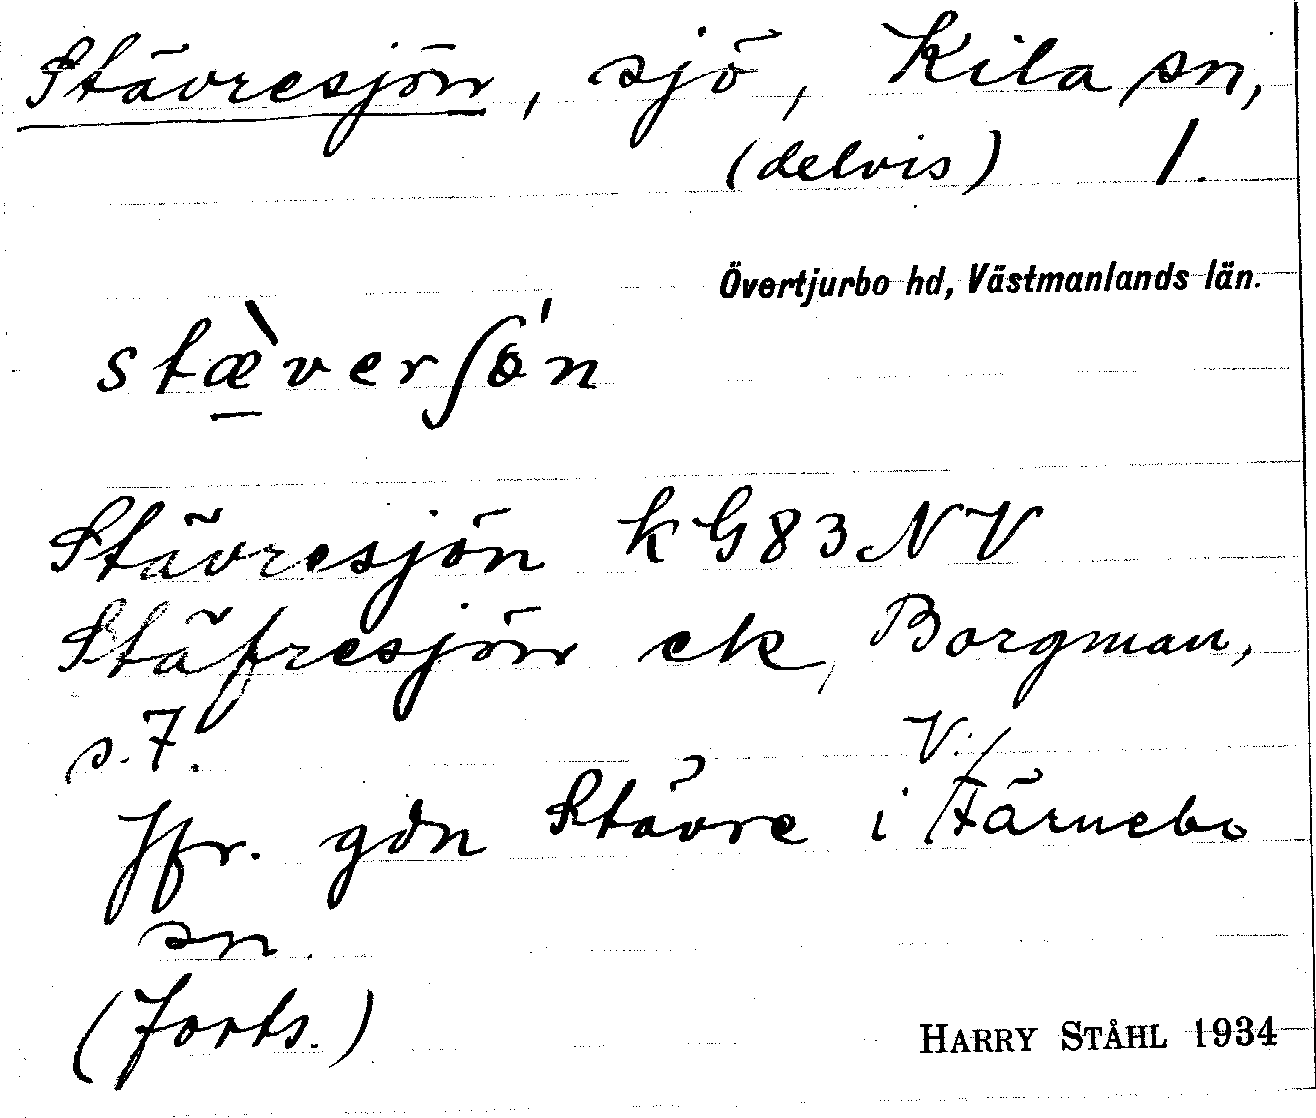 Stävresjön, sjö, Kila sn,
(delvis) 1.
Övertjurbo hd, Västmanlands län.
stæ̀verʃö́n
Stävresjön kG83NV
Stäfresjön ek, Borgman,
s. 7.
Jfr. gdn Stävre i V. Färnebo
sn.
(forts.)
HARRY STÅHL 1934